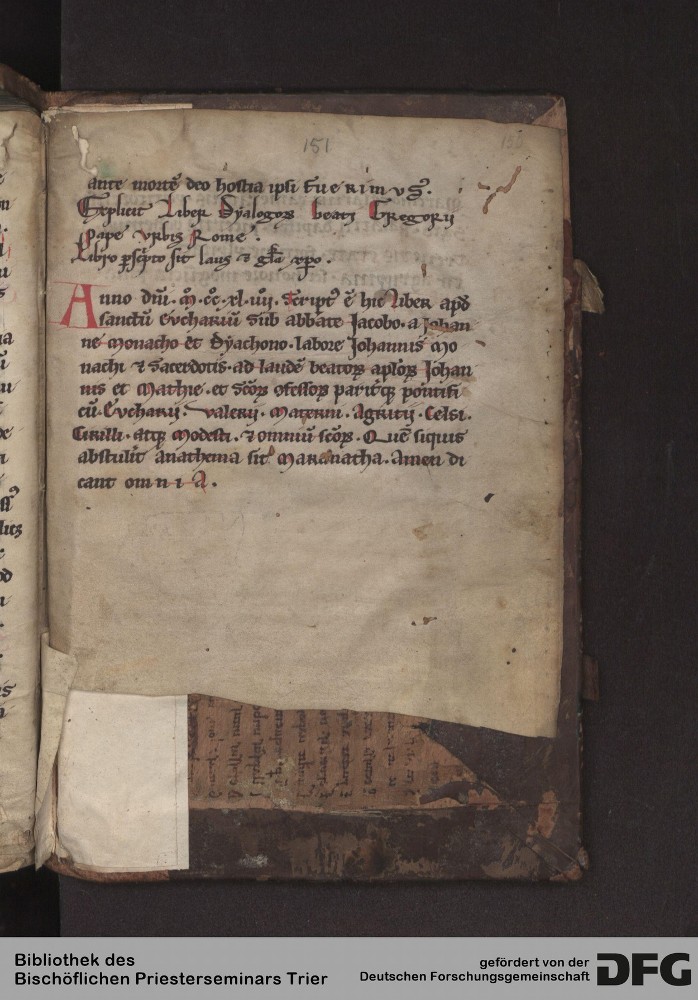 151
150
ante mortē deo hostia ipsi fuerimus.
Explicit Liber Dyalogoꝝ beati Gregorii
Pape urbis Rome.
Libro ꝑscͥpto sit laus ⁊ glͣa xp̄o.
Anno dn̄i. m̊. cc̊. xl. iiij. Scriptꝰ ē hic Liber apd
sanctū Euchariū sub abbate Jacobo. a Johan
ne monacho et Dyachono. labore Johannis mo
nachi ⁊ sacerdotis. ad laudē beatoꝝ aplōꝝ Johan
nis et Mathie. et scōꝝ ꝯfessoꝝ pariterqꝫ pontifi
cū. Eucharii. Valerii. Materni. Agritii. Celsi.
Cirilli. atqꝫ Modesti. ⁊ omniū scōꝝ. Quē siquis
abstulit anathema sit Maranatha. Amen di
cant omnia.
Bibliothek des
Bischöflichen Priesterseminars Trier
gefördert von der
Deutschen Forschungsgemeinschaft
DFG